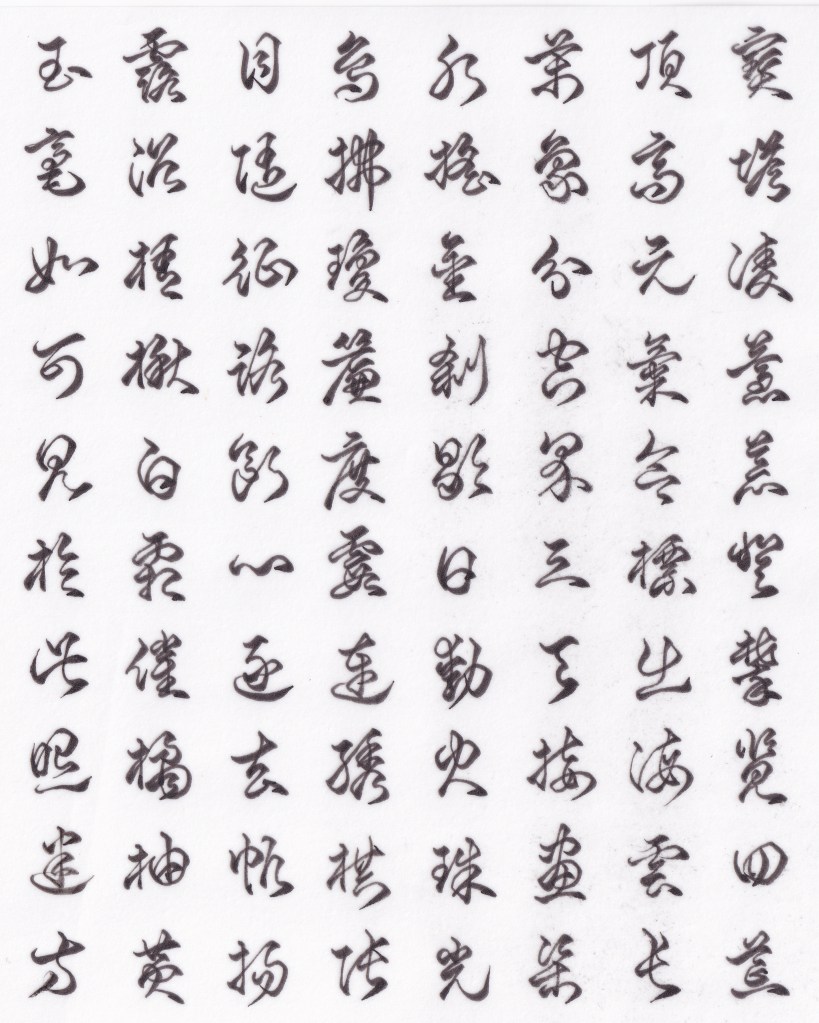 寶塔凌蒼蒼登攀覽四荒
頂高元氣合標出海雲長
萬象分空界三天接畫梁
水搖金刹影日動火珠光
鳥拂瓊簾度霞連繡栱張
目隨征路斷心逐去帆揚
露浴梧楸白霜催橘柚黃
玉毫如可見於此照迷方